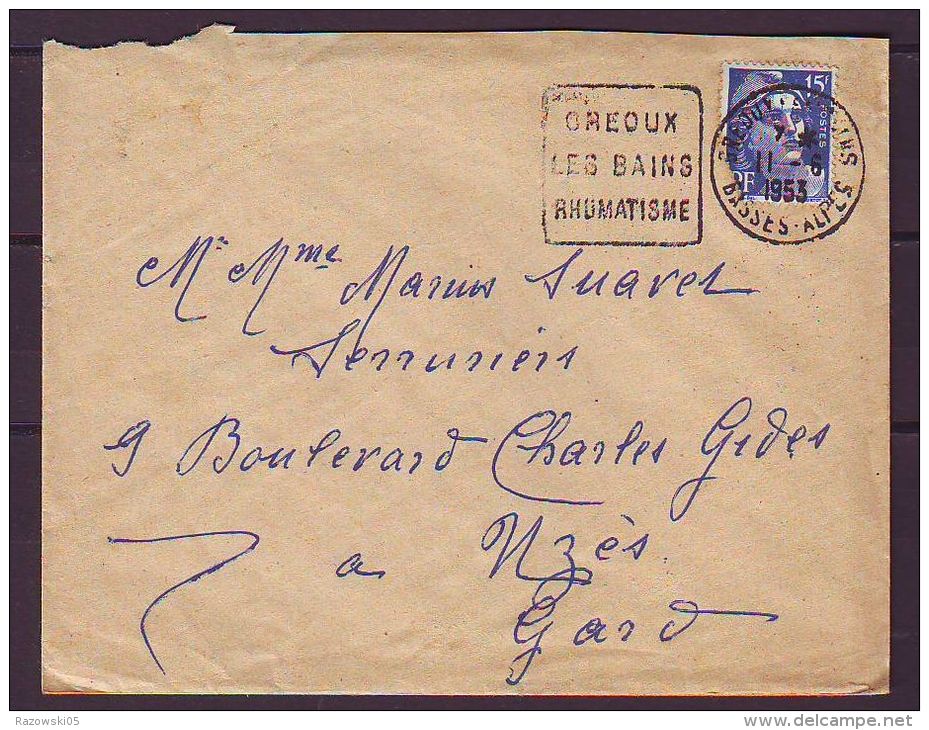 GREOUX
LES BAINS
RHUMATISME
15F
POSTES
RF
GREOUX-LES-BAINS
11 - 6
1953
BASSES-ALPES
Mr Mme Marius Suavet
Serruriers
9 Boulevard Charles Gides
a Uzès
Gard
Razowski05
www.delcampe.net